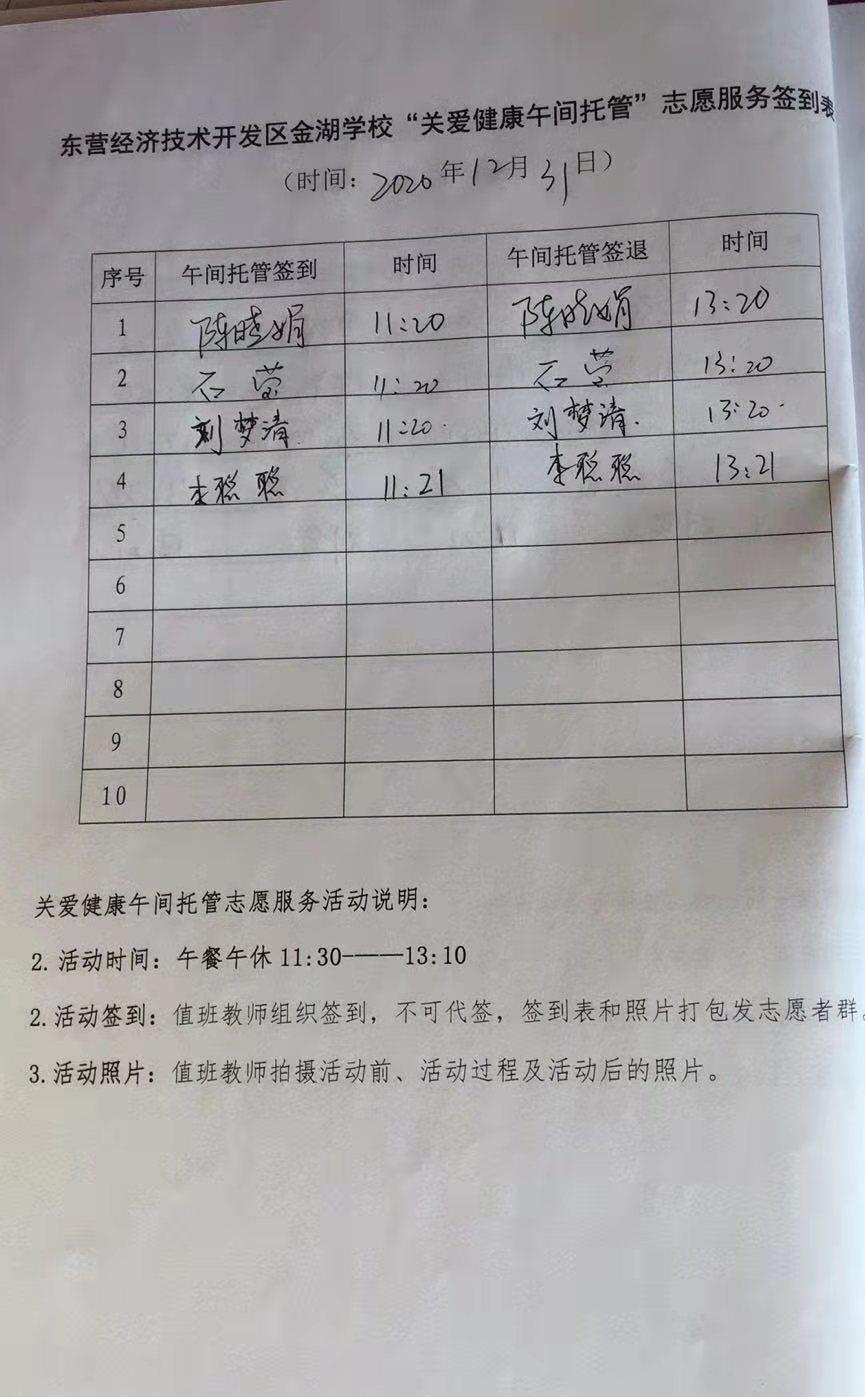 东营经济技术开发区金湖学校“关爱健康午间托管”志愿服务签到表
（时间：2020年12月31日）
序号 午间托管签到 时间 午间托管签退 时间
1 陈晓娟 11:20 陈晓娟 13:20
2 石莹 11:20 石莹 13:20
3 刘梦清 11:20 刘梦清 13:20
4 李聪聪 11:21 李聪聪 13:21
5
6
7
8
9
10
关爱健康午间托管志愿服务活动说明：
2.活动时间：午餐午休 11:30———13:10
2.活动签到：值班教师组织签到，不可代签，签到表和照片打包发志愿者群。
3.活动照片：值班教师拍摄活动前、活动过程及活动后的照片。